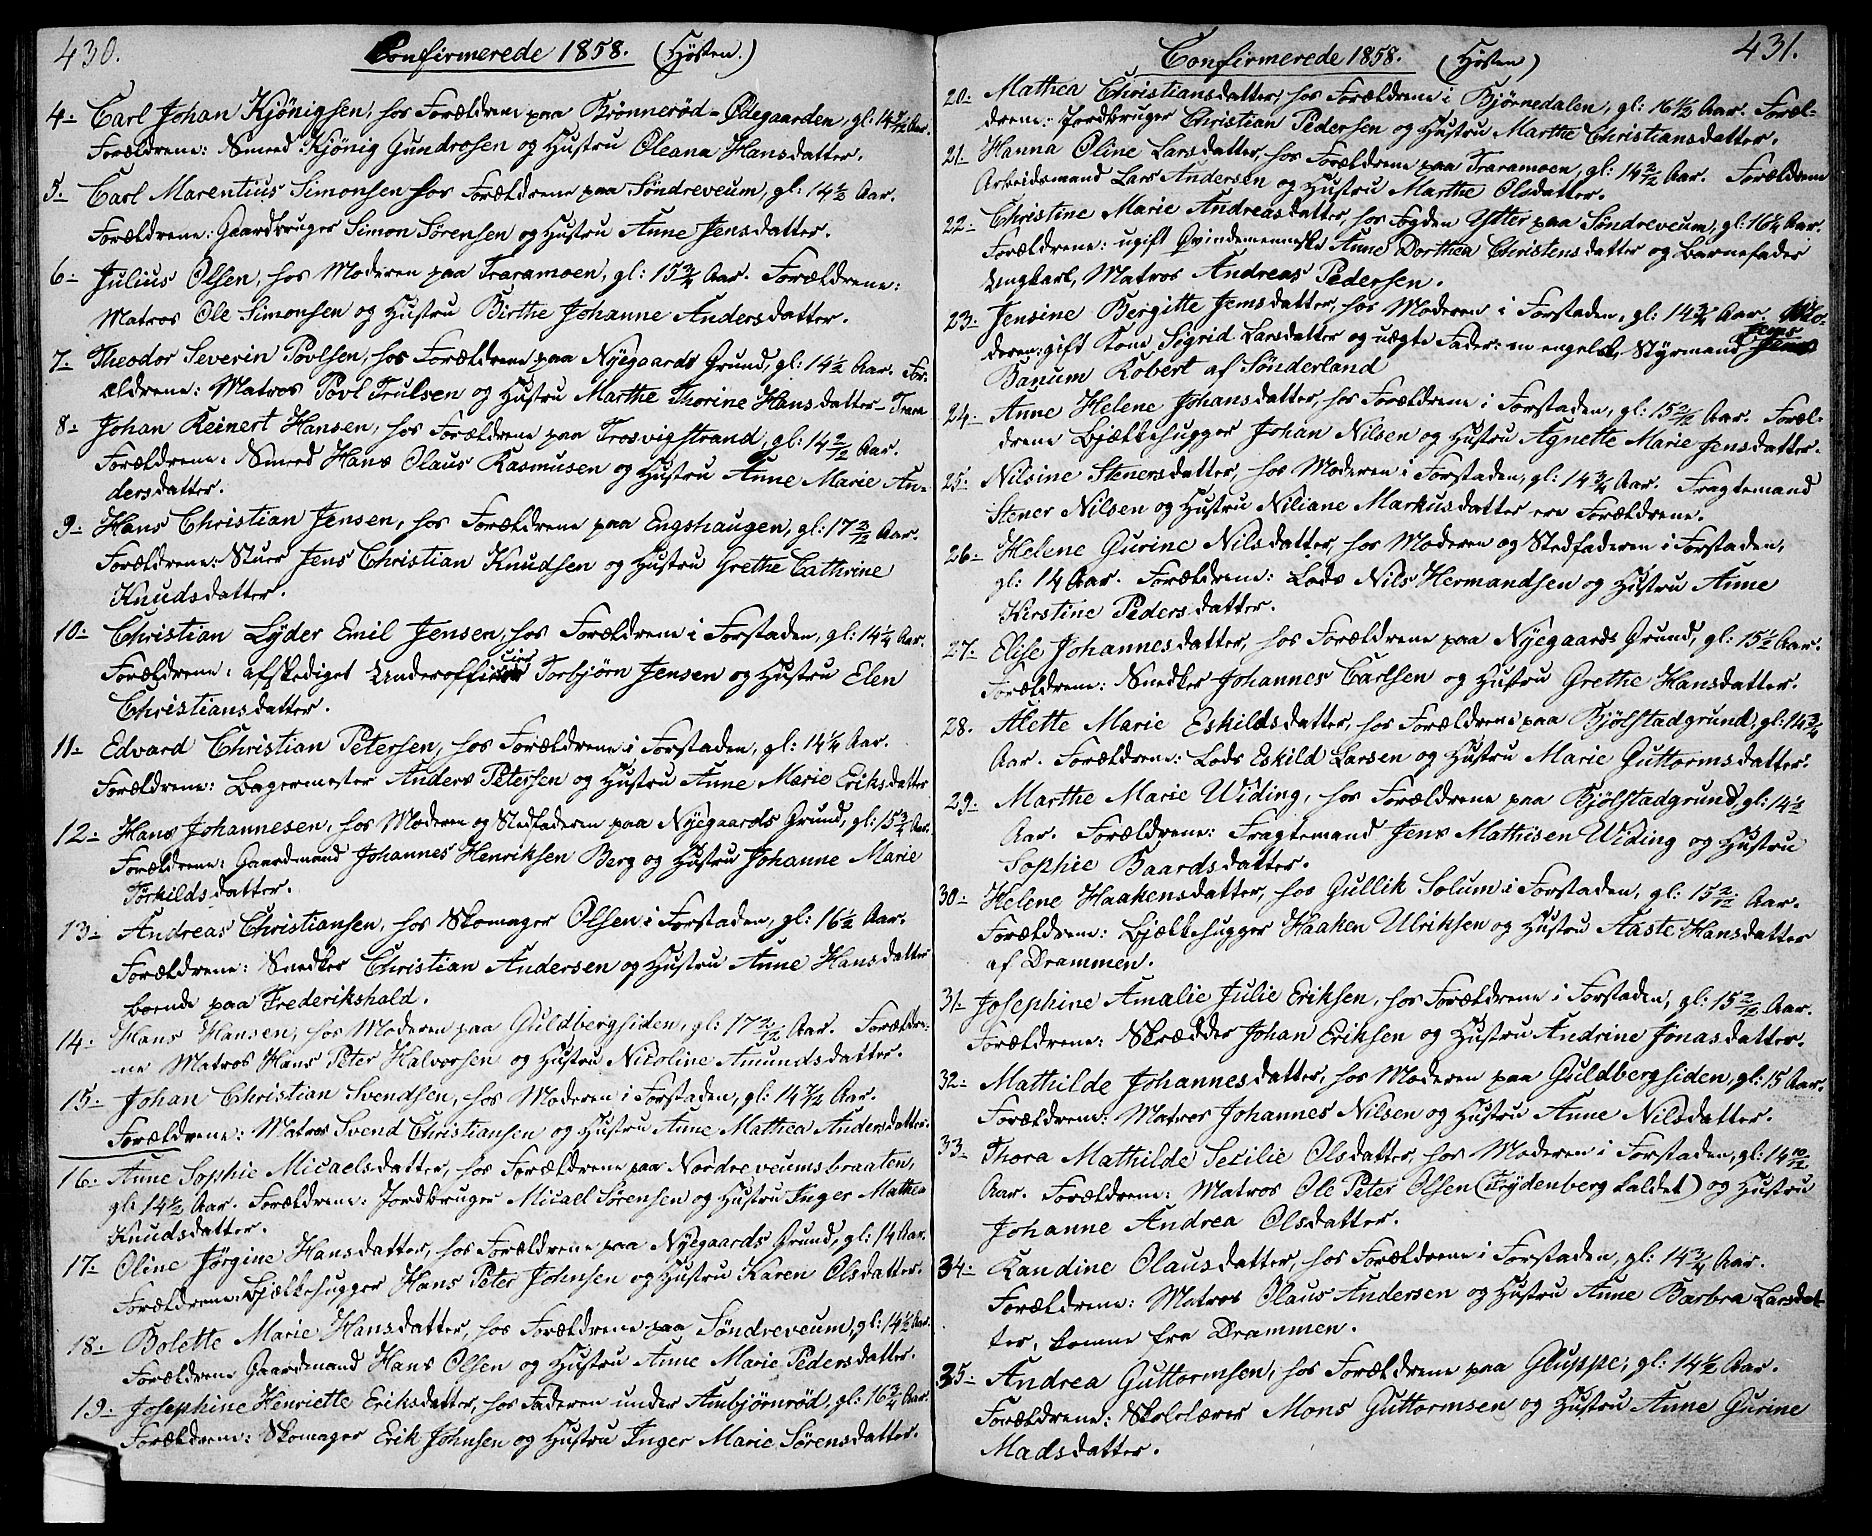 430.
Confirmerede 1858. (Hösten.)
4. Carl Johan Kjönigsen, hos Forældrene paa Brönneröd-Ødegaarden, gl: 14 7/12 Aar.
Forældrene: Smeed Kjönig Gundrosen og Hustru Oleana Hansdatter.
5. Carl Marentius Simonsen hos Forældrene paa Söndreveum, gl: 14 1/2 Aar.
Forældrene: Gaardbruger Simon Sörensen og Hustru Anne Jensdatter.
6. Julius Olsen, hos Moderen paa Traramoen, gl: 15 3/4 Aar. Forældrene:
Matros Ole Simonsen og Hustru Birthe Johanne Andersdatter.
7. Theodor Severin Povlsen, hos Forældrene paa Nyegaards Grund, gl: 14 1/2 Aar. For-
ældrene: Matros Povl Trulsen og Hustru Marthe Thorine Hansdatter- Trara
8. Johan Reinert Hansen, hos Forældrene paa Trosvigstrand, gl: 14 2/12 Aar.
Forældrene: Smeed Hans Olaus Rasmusen og Hustru Anne Marie An-
dersdatter.
9. Hans Christian Jensen, hos Forældrene paa Engshaugen, gl: 17 2/12 Aar.
Forældrene: Stuer Jens Christian Knudsen og Hustru Grethe Cathrine
Knudsdatter.
10. Christian Lyder Emil Jensen, hos Forældrene i Forstaden, gl: 14 1/4 Aar.
Forældrene: afskediget Underofficier Torbjörn Jensen og Hustru Elen
Christiansdatter.
11. Edvard Christian Petersen, hos Forældrene i Forstaden, gl: 14 1/4 Aar.
Forældrene: Bagermester Anders Petersen og Hustru Anne Marie Eriksdatter
12. Hans Johannesen, hos Moderen og Stedfaderen paa Nyegaards Grund, gl: 15 3/4 Aar.
Forældrene: Gaardmand Johannes Henriksen Berg og Hustru Johanne Marie
Törkildsdatter.
13. Andreas Christiansen, hos Skomager Olsen i Forstaden, gl: 16 1/2 Aar.
Forældrene: Snedker Christian Andersen og Hustru Anne Hansdatter
boende paa Frederikshald.
14. Hans Hansen, hos Moderen paa Guldbergsiden, gl: 17 2/12 Aar. Forældre-
ne Matros Hans Peter Halvorsen og Hustru Nicoline Amundsdatter.
15. Johan Christian Svendsen, hos Moderen i Forstaden, gl: 14 7/12 Aar.
Forældrene: Matros Svend Christiansen og Hustru Anne Mathea Andersdatter.
16. Anne Sophie Micaelsdatter, hos Forældrene paa Nordreveumsbraaten,
gl: 14 1/2 Aar. Forældrene: Jordbruger Micael Sörensen og Hustru Inger Mathea
Knudsdatter.
17. Oline Jörgine Hansdatter, hos Forældrene paa Nyegaards Grund, gl: 14 Aar.
Forældrene: Bjelkehugger Hans Peter Johnsen og Hustru Karen Olsdatter.
18. Bolette Marie Hansdatter, hos Forældrene paa Söndreveum, gl: 14 1/2 Aar.
Forældrene Gaardmand Hans Olsen og Hustru Anne Marie Pedersdatter.
19. Josephine Henriette Eriksdatter, hos Faderen under Ambjörnröd, gl: 16 3/4 Aar.
Forældrene: Skomager Erik Johnsen og Hustru Inger Marie Sörensdatter.
431.
Confirmerede 1858. (Hösten)
20. Mathea Christiansdatter, hos Forældrene i Bjørnedalen, gl: 16 1/2 Aar. Foræl-
drene: Jordbruger Christian Pedersen og Hustru Marthe Christiansdatter.
21. Hanna Oline Larsdatter, hos Forældrene paa Traramoen, gl: 14 2/12 Aar. Forældrene
Arbeidsmand Lars Andersen og Hustru Marthe Olsdatter.
22. Christine Marie Andreasdatter, hos Fogden Ytter paa Söndreveum, gl: 16 1/4 Aar.
Forældrene: ugift Qvindemenneske Anne Dorthea Christensdatter og Barnefader
Ungkarl, Matros Andreas Pedersen.
23. Jensine Bergitte Jemsdatter, hos Moderen i Forstaden, gl: 14 3/4 Aar. Mo-
deren: gift Kone Sigrid Larsdatter og uægte Fader: en engelsk Styrmand Jems
Banum Robert af Sönderland
24. Anne Helene Johansdatter, hos Forældrene i Forstaden, gl: 15 2/12 Aar. Foræl-
drene Bjælkehugger Johan Nilsen og Hustru Agnette Marie Jensdatter.
25. Nilsine Stenersdatter, hos Moderen i Forstaden, gl: 14 3/4 Aar. Fragtemand
Stener Nilsen og Hustru Niliane Markusdatter ere Forældrene.
26. Helene Gurine Nilsdatter, hos Moderen og Stedfaderen i Forstaden,
gl: 14 Aar. Forældrene: Lods Nils Hermandsen og Hustru Anne
Kirstine Pedersdatter.
27. Elise Johannesdatter, hos Forældrene paa Nyegaards Grund, gl: 15 1/2 Aar.
Forældrene: Snedker Johannes Carlsen og Hustru Grethe Hansdatter.
28. Alette Marie Eskildsdatter, hos Forældrene paa Bjölstadgrund, gl: 14 3/4
Aar. Forældrene: Lods Eskild Larsen og Hustru Marie Guttormsdatter.
29. Marthe Marie Widing, hos Forældrene paa Bjölstadgrund, gl: 14 1/2
Aar. Forældrene: Fragtemand Jens Mathisen Widing og Hustru
Sophie Baardsdatter.
30. Helene Haakensdatter, hos Gullik Solum i Forstaden, gl: 15 2/12 Aar.
Forældrene: Bjælkehugger Haaken Ulriksen og Hustru Aaste Hansdatter
af Drammen.
31. Josephine Amalie Julie Eriksen, hos Forældrene i Forstaden, gl: 15 2/12 Aar.
Forældrene: Skrædder Johan Eriksen og Hustru Andrine Jonasdatter.
32. Mathilde Johannesdatter, hos Moderen paa Guldbergsiden, gl: 15 Aar.
Forældrene: Matros Johannes Nilsen og Hustru Anne Nilsdatter.
33. Thora Mathilde Secilie Olsdatter, hos Moderen i Forstaden, gl: 14 10/12
Aar. Forældrene: Matros Ole Peter Olsen (Frydenberg kaldet) og Hustru
Johanne Andrea Olsdatter.
34. Randine Olausdatter, hos Forældrene i Forstaden, gl: 14 3/4 Aar.
Forældrene: Matros Olaus Andersen og Hustru Anne Barbra Larsdat-
ter, komne fra Drammen.
35. Andrea Guttormsen, hos Forældrene paa Gluppe, gl: 14 1/2 Aar.
Forældrene: Skolelærer Mons Guttormsen og Hustru Anne Gurine
Madsdatter.